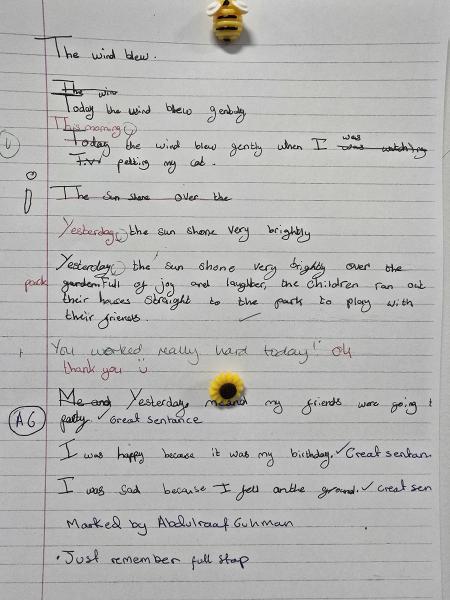 The wind blew.
The win
Today the wind blew gently
This morning,
Today the wind blew gently when I was was watching
petting my cat.
The Sun shone over the
Yesterday, the sun shone very brightly
Yesterday, the sun shone very brightly over the
park garden. Full of joy and laughter, the children ran out
their houses straight to the park to play with
their friends.
You worked really hard today! Ok
thank you
Me and Yesterday, me and my friends were going t
party. Great sentance
A6
I was happy because it was my birthday. Great sentan
I was sad because I fell on the ground. Great sen
Marked by Abdulraaf Guhman
• Just remember full stop